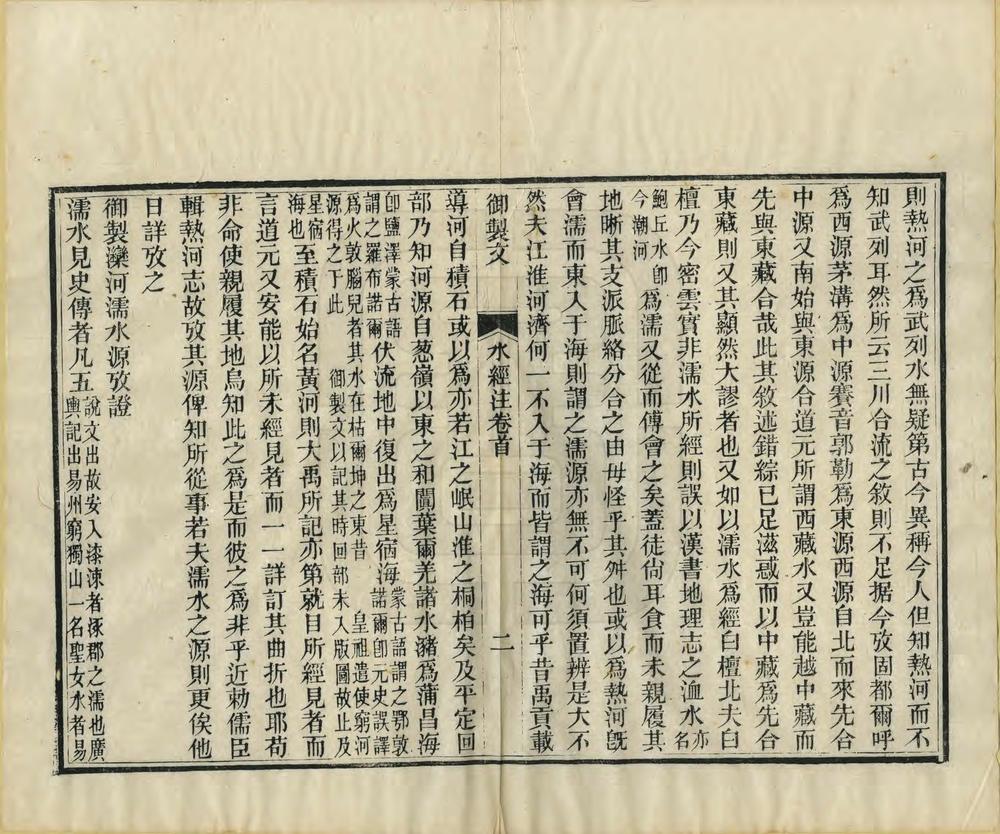 則熱河之爲武列水無疑第古今異稱今人但知熱河而不
知武列耳然所云三川合流之敘則不足据今攷固都爾呼
爲西源茅溝爲中源賽音郭勒爲東源西源自北而來先合
中源又南始與東源合道元所謂西藏水又豈能越中藏而
先與東藏合哉此其敘述錯綜已足滋惑而以中藏爲先合
東藏則又其顯然大謬者也又如以濡水爲經白檀北夫白
檀乃今密雲實非濡水所經則誤以漢書地理志之洫水亦名
鮑丘水卽今潮河爲濡又從而傅會之矣蓋徒尙耳食而未親履其
地晰其支派脈絡分合之由毋怪乎其舛也或以爲熱河旣
會濡而東入于海則謂之濡源亦無不可何須置辨是大不
然夫江淮河濟何一不入于海而皆謂之海可乎昔禹貢載
御製文 水經注卷首 二
導河自積石或以爲亦若江之岷山淮之桐柏矣及平定回
部乃知河源自葱嶺以東之和闐葉爾羌諸水瀦爲蒲昌海
卽鹽澤蒙古語謂之羅布諾爾伏流地中復出爲星宿海蒙古語謂之鄂敦諾爾卽元史誤譯
爲火敦腦兒者其水在枯爾坤之東昔 皇祖遣使窮河源得之于此 御製文以記其時回部未入版圖故止及
星宿海也至積石始名黃河則大禹所記亦第就目所經見者而
言道元又安能以所未經見者而一一詳訂其曲折也耶茍
非命使親履其地烏知此之爲是而彼之爲非乎近勅儒臣
輯熱河志故攷其源俾知所從事若夫濡水之源則更俟他
日詳攷之
御製灤河濡水源攷證
濡水見史傳者凡五說文出故安入漆涑者涿郡之濡也廣輿記出易州窮獨山一名聖女水者易